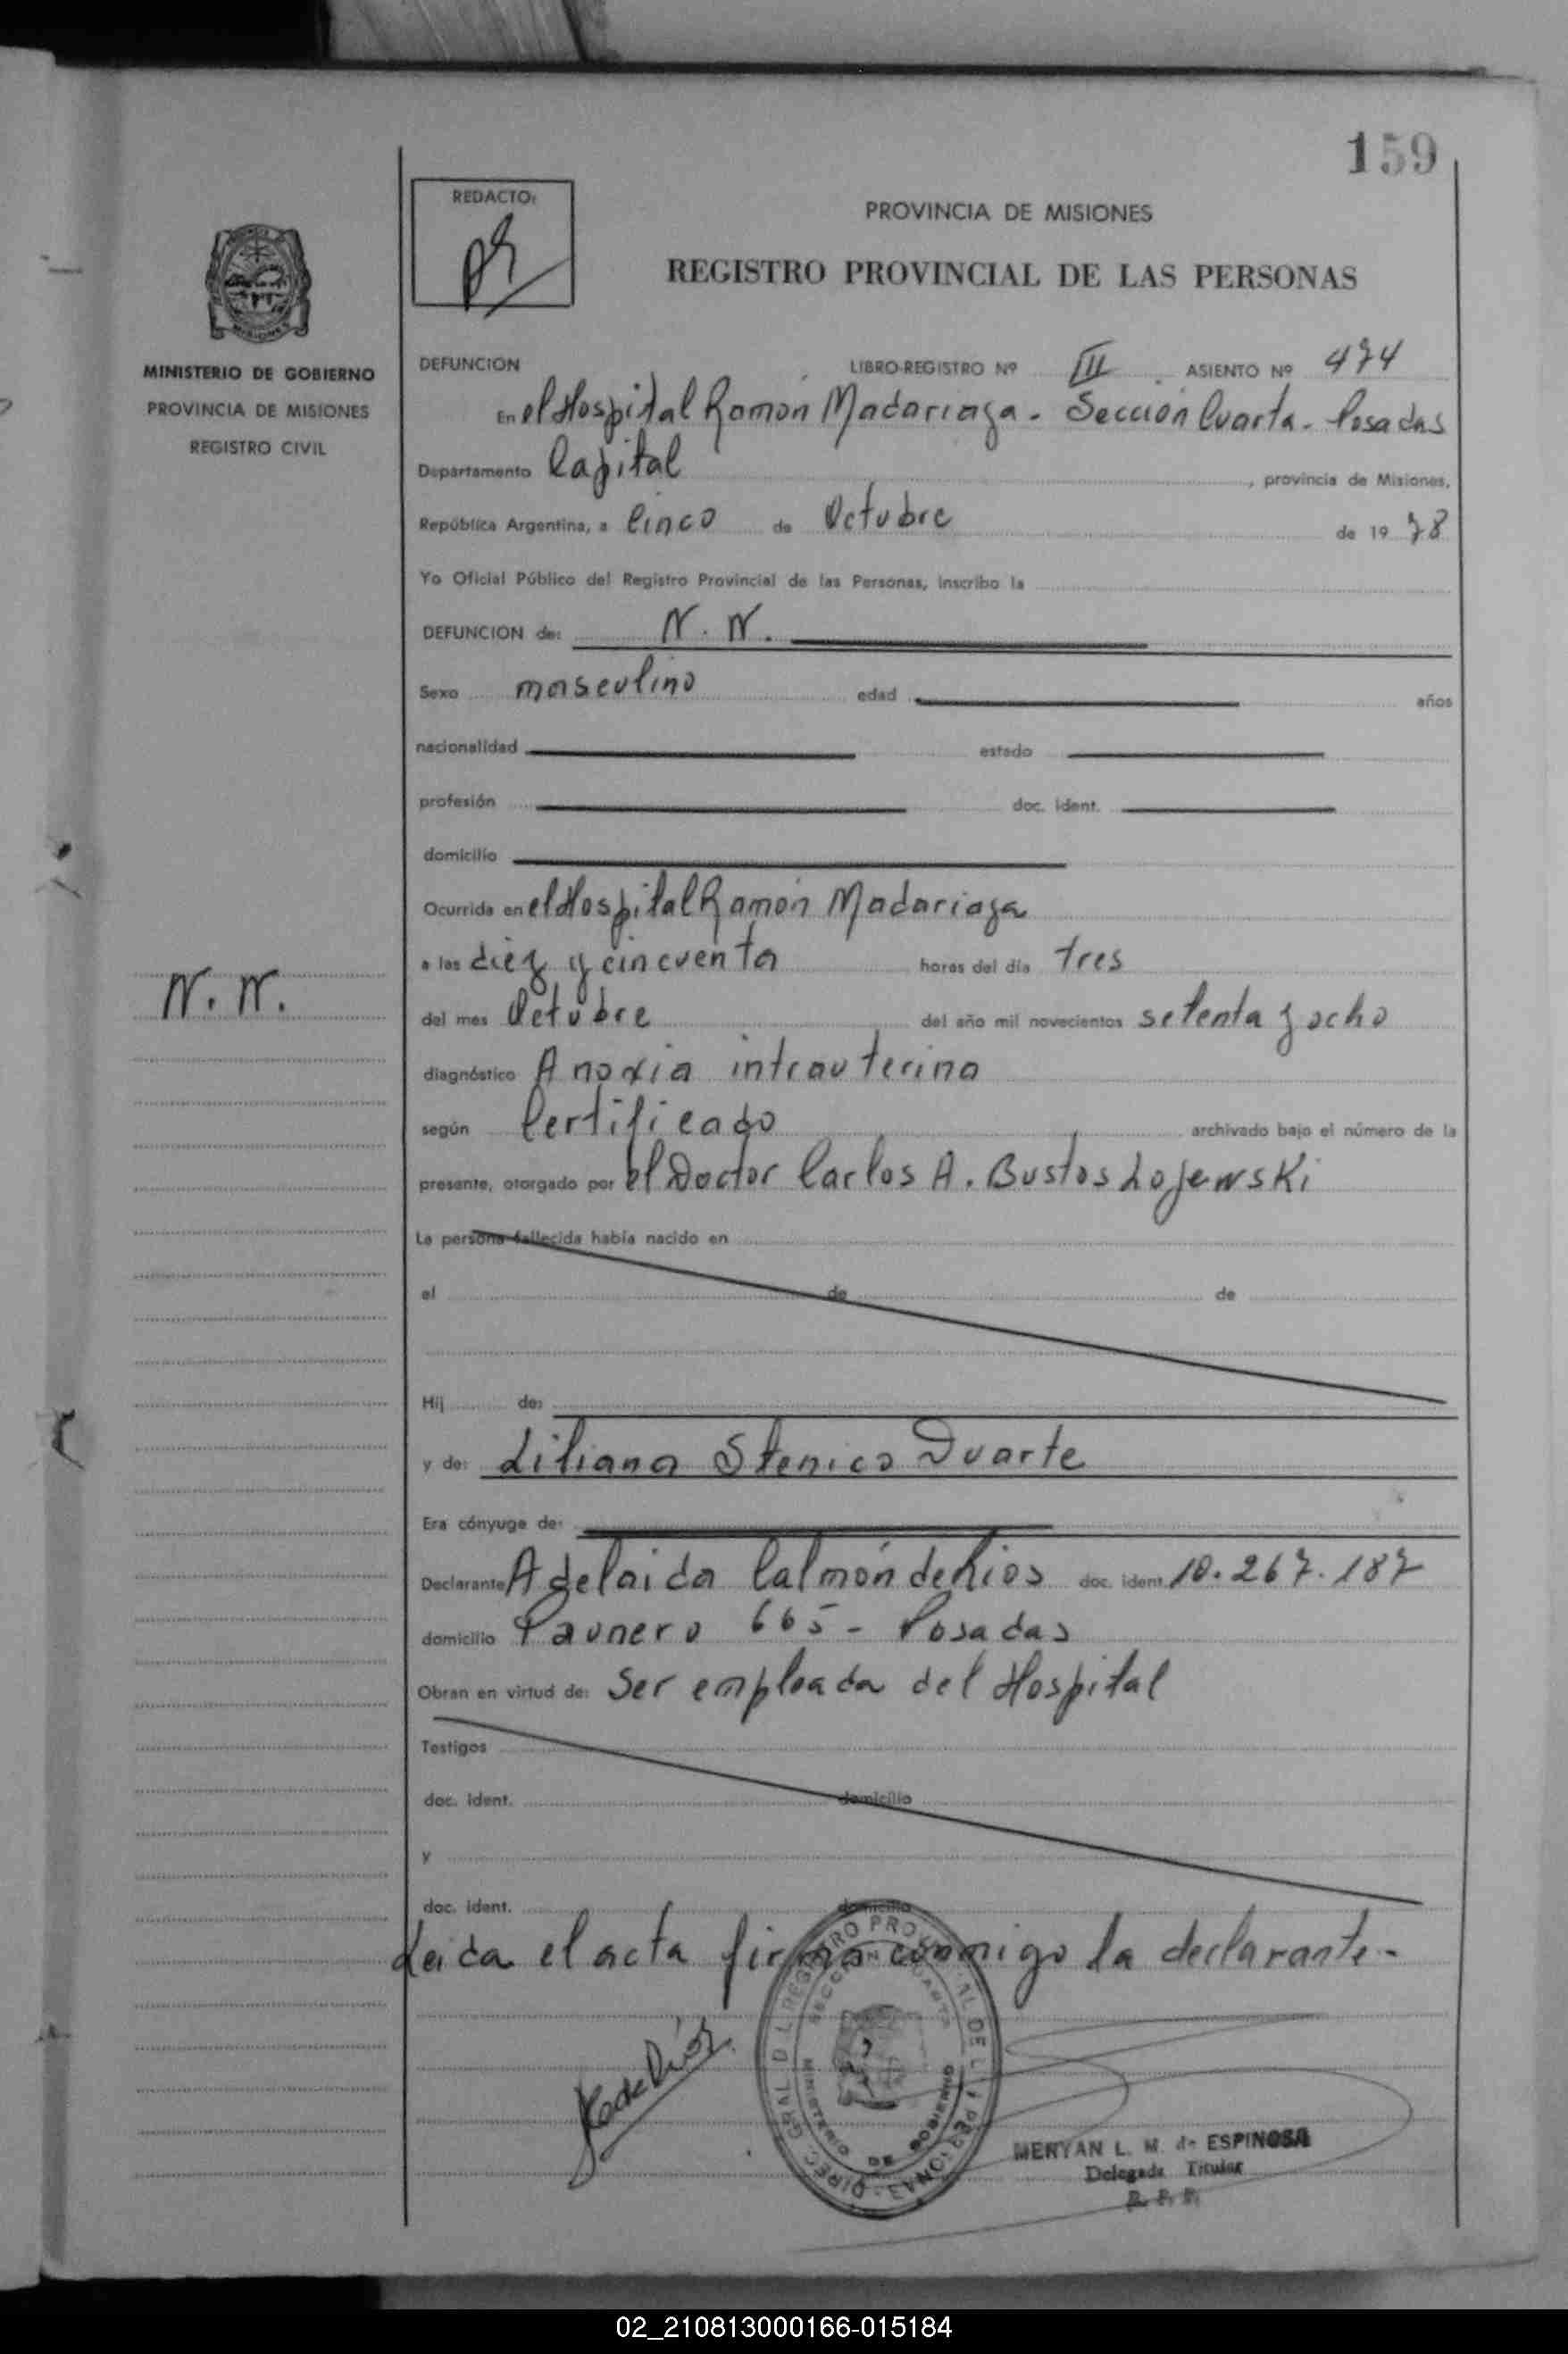 159
REDACTO:
PROVINCIA DE MISIONES
REGISTRO PROVINCIAL DE LAS PERSONAS
MINISTERIO DE GOBIERNO
PROVINCIA DE MISIONES
REGISTRO CIVIL
DEFUNCION LIBRO-REGISTRO Nº III ASIENTO Nº 474
En el Hospital Ramón Madariaga - Sección Cuarta - Posadas
Departamento Capital, provincia de Misiones,
República Argentina, a Cinco de Octubre de 1978
Yo Oficial Público del Registro Provincial de las Personas, inscribo la
DEFUNCION de: N. N.
Sexo masculino edad años
nacionalidad estado
profesión doc. ident.
domicilio
Ocurrida en el Hospital Ramón Madariaga
a las diez y cincuenta horas del día tres
N. N.
del mes Octubre del año mil novecientos setenta y ocho
diagnóstico Anoxia intrauterina
según Certificado archivado bajo el número de la
presente, otorgado por el Doctor Carlos A. Bustos Lojewski
La persona fallecida había nacido en
el de de
Hij de:
y de: Liliana Duarte
Era cónyuge de:
Declarante Adelaida Calmón de doc. ident. 10.267.187
domicilio Paunero 665 - Posadas
Obran en virtud de: Ser empleada del Hospital
Testigos
doc. ident. domicilio
y
doc. ident. domicilio
Leida el acta firma conmigo la declarante.-
SECCION CUARTA
MINISTERIO DE GOBIERNO
MERYAN L. M. de ESPINOSA
Delegada Titular
R. P. P.
02_210813000166-015184